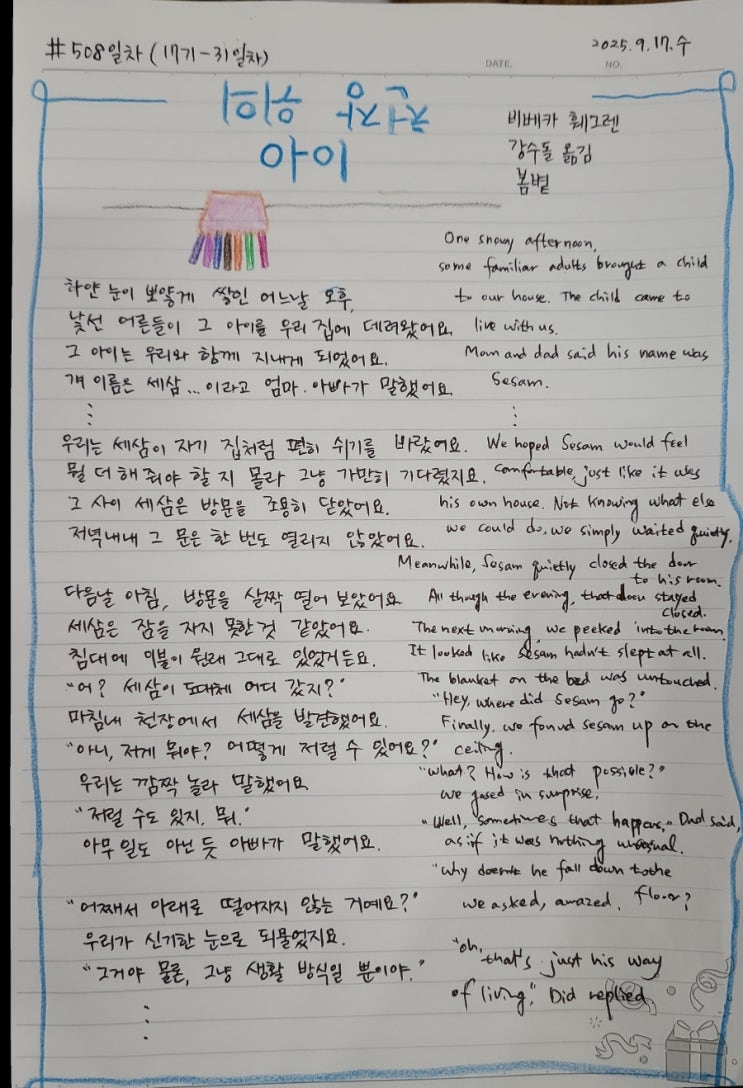 #508일차 (17기-31일차)
2025.9.17.수
DATE.
NO.
천장 위의
아이
비베카 훼그렌
강수돌 옮김
봄볕
하얀 눈이 뽀얗게 쌓인 어느날 오후,
낯선 어른들이 그 아이를 우리 집에 데려왔어요.
그 아이는 우리와 함께 지내게 되었어요.
걔 이름은 세삼...이라고 엄마.아빠가 말했어요.
⋮
우리는 세삼이 자기 집처럼 편히 쉬기를 바랐어요.
뭘 더 해 줘야 할 지 몰라 그냥 가만히 기다렸지요.
그 사이 세삼은 방문을 조용히 닫았어요.
저녁내내 그 문은 한 번도 열리지 않았어요.
다음날 아침, 방문을 살짝 열어 보았어요
세삼은 잠을 자지 못한 것 같았어요.
침대에 이불이 원래 그대로 있었거든요.
"어? 세삼이 도대체 어디 갔지?"
마침내 천장에서 세삼을 발견했어요.
"아니, 저게 뭐야? 어떻게 저럴 수 있어요?"
우리는 깜짝 놀라 말했어요
"저럴 수도 있지. 뭐."
아무 일도 아닌 듯 아빠가 말했어요.
"어째서 아래로 떨어지지 않는 거예요?"
우리가 신기한 눈으로 되물었지요.
"그거야 물론, 그냥 생활 방식일 뿐이야."
⋮
One snowy afternoon,
some familiar adults brought a child
to our house. The child came to
live with us.
Mom and dad said his name was
Sesam.
⋮
We hoped Sesam would feel
comfortable, just like it was
his own house. Not knowing what else
we could do, we simply waited quietly.
Meanwhile, Sesam quietly closed the door
to his room.
All though the evening, that door stayed
closed.
The next morning, we peeked into the room.
It looked like Sesam hadn't slept at all.
The blanket on the bed was untouched.
"Hey, where did Sesam go?"
Finally, we found Sesam up on the
ceiling.
"What? How is that possible?"
we gased in surprise.
"Well, sometimes that happens," Dad said,
as if it was nothing unusual.
"Why doesn't he fall down to the
floor?
we asked, amazed.
"oh,
that's just his way
of living." Did replied